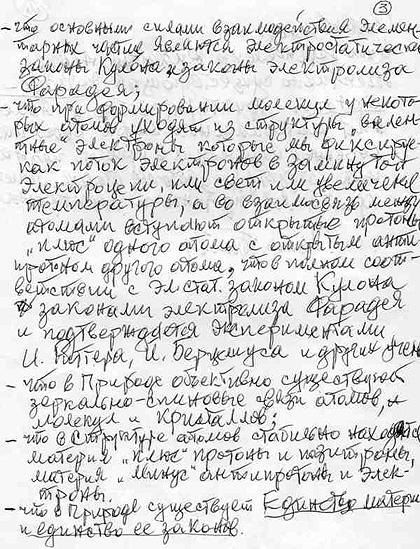 ③
– что основными силами взаимодействия элемен-
тарных частиц являются электростатическ
законы Кулона и законы электролиза
Фарадея;
– что при формировании молекул у некото-
рых атомов уходят из структуры „вален-
тные" электроны которые мы фиксируе
как поток электронов в замкнутой
электроцепи, или свет или увеличение
температуры, а во взаимосвязь между
атомами вступают открытые протоны
„плюс" одного атома с открытым анти
протоном другого атома, что в полном соот-
ветствии с Эл.стат. законом Кулона
законами электролиза Фарадея
и подтверждается экспериментами
И. Риттера, И. Берцелиуса и других учен
– что в Природе объективно существуют
зеркально-спиновые связи атомов,
молекул и кристаллов;
– что в структуре атомов стабильно находятся
материя „плюс" протоны и позитроны,
материя „минус" антипротоны и элек-
троны.
– что в Природе существует Единство матери
и единство ее законов.